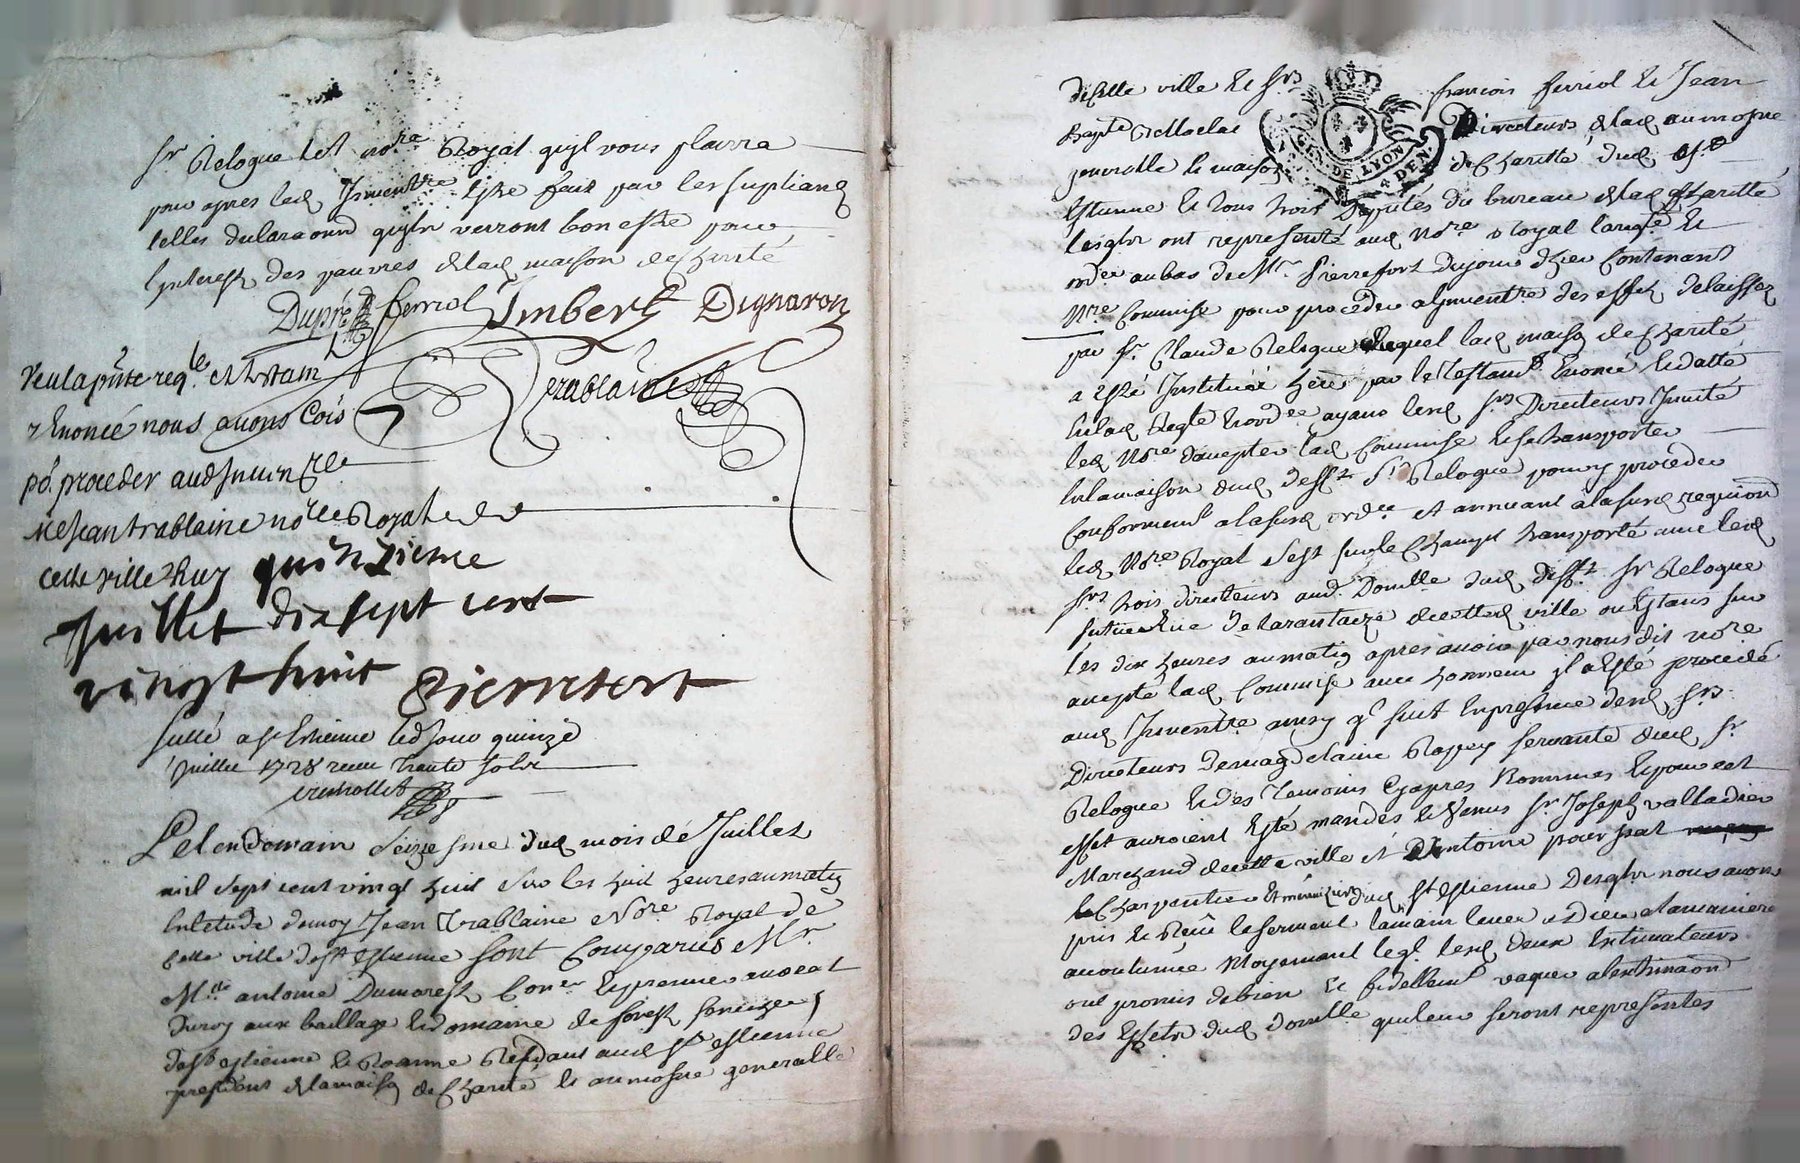 Sr Relogue led nore Royal qigl vous plaira
pour apres led Inventre estre fait par les suplians
telles declaraons qigls verront bon estre pour
l'interest des pauvres de lad maison de charité
Dupré ferriol Imbert Dignaron
Veu la pnte reqte et le testam
Trablaine
y Enoncé nous avons Cois
po. proceder aud Inventre
Me Jean trablaine nore Royal de
cette ville d'huy quinzieme
Juillet dix sept cent
vingt huit Pierrefort
Sellé a St Estienne led jour quinze
Juillet 1728 receu trente sols
Et le lendemain seizesme dud mois de Juillet
mil sept cent vingt huit sur les huit heures au matin
en l'etude de moy Jean Trablaine Nore Royal de
cette ville de St Estienne sont Comparus Mr
Me antoine Dumarest Coner et premier avocat
du roy aux baillage et domaine de forest
de St estienne et Roanne Residant aud St estienne
president de la maison de Charité et aumosne generalle
de cette ville et Srs françois ferriol et Jean
Bapte Directeurs de lad aumosne
generalle et maison de Charitté dud St
Estienne et tous trois Deputés du bureau de lad Charitté
lesqls ont representé aud Nore Royal la reqte et
ordce au bas de Mr Pierrefort du jour d'hier Contenant
Nre Commise pour proceder a l'Inventre des effets delaissez
par Sr Claude Relogue duquel lad maison de Charité
a esté Instituée here par le Testamt Enoncé et datté
en lad Reqte et ordce ayant lesd Srs Directeurs Invité
led Nore d'accepter lad Commise et se transporter
en la maison dud deft Sr Relogue pour y proceder
Conformemt a la susd ordce et annuant à la susd requion
led Nore Royal s'est sur le Champ transporté avec lesd
Srs trois directeurs aud Domlle dud deft Sr Relogue
situé Rue de tarantaize de cette ville ou Estans sur
les dix heures au matin apres avoir par nous dit nore
accepté lad Commise avec honneur il a Esté procedé
aud Inventre ainsy q' suit En presence desd Srs
Directeurs de magdelaine Royey servante dud Sr
Relogue et des Temoins Cy apres Nommes et pour cet
effet auroient Esté mandés et Venus Sr Joseph valladier
Marchand de cette ville et Antoine pour
Charpentier et menuizier dud St Estienne Desqls nous avons
pris et Receu le serment la main levée a dieu a la maniere
accoutumée Moyennant leql lesd deux Estimateurs
ont promis de bien et fidellemt vaquer a l'estimaon
des Effets dud domlle qui leur seront representés
DE LYON
4 DEN.